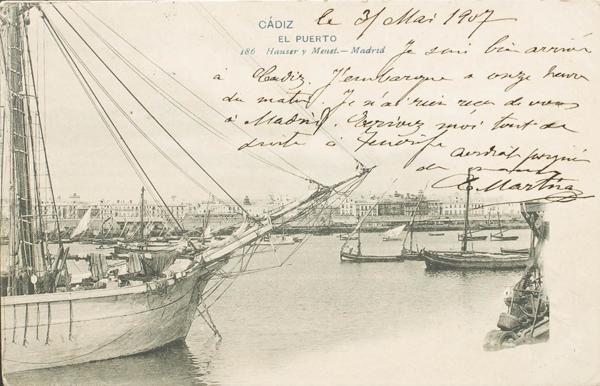 CÁDIZ
EL PUERTO
186 Hauser y Menet.—Madrid
le 31 Mai 1907
Je suis bien arrivé
à Cadiz. J'embarque a onze heures
du matin. Je n'ai rien reçu de vous
à Madrid. Ecrivez moi tout de
suite à Tenerife
de
E. Martina